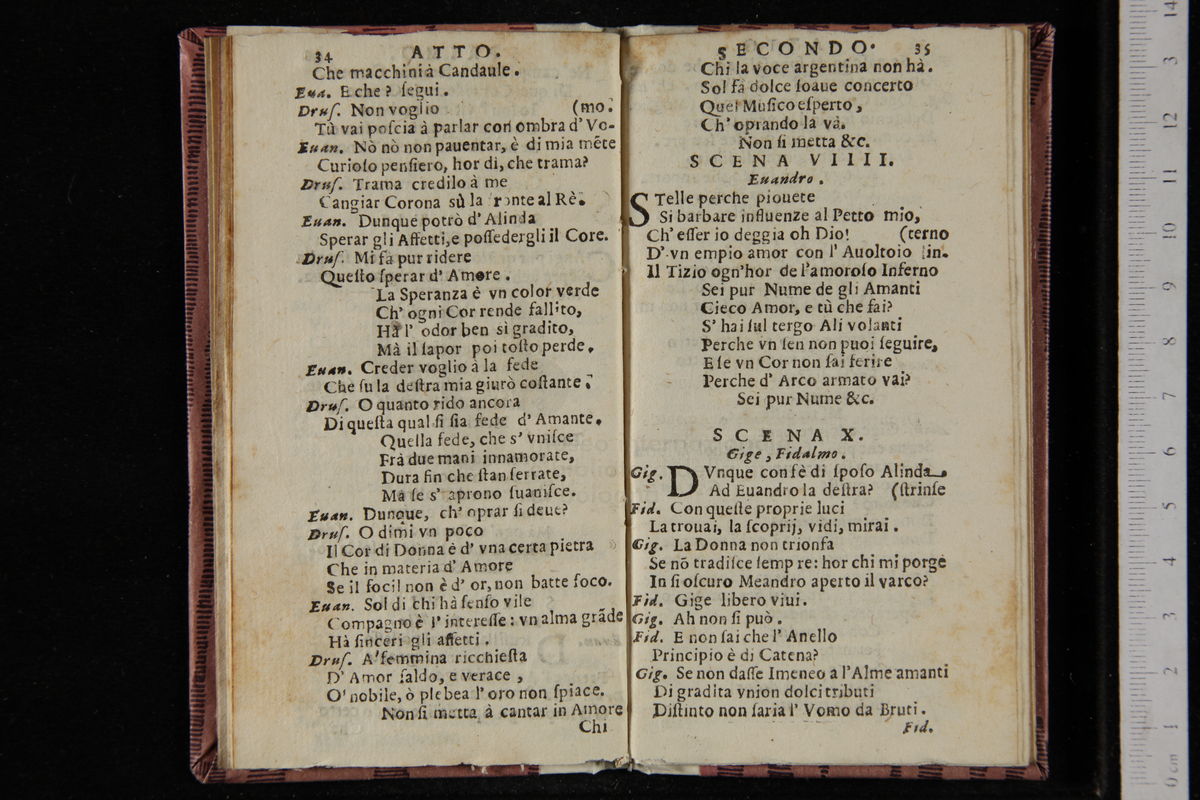 34 ATTO.
Che macchini à Candaule.
Eua. E che? ſegui.
Druſ. Non voglio (mo.
Tù vai poſcia à parlar con ombra d' Vo-
Euan. Nò nò non pauentar, è di mia mẽte
Curioſo penſiero, hor di, che trama?
Druſ. Trama credilo à me
Cangiar Corona sù la fronte al Rè.
Euan. Dunque potrò d' Alinda
Sperar gli Affetti, e poſſedergli il Core.
Druſ. Mi fa pur ridere
Queſto ſperar d' Amore.
La Speranza è vn color verde
Ch' ogni Cor rende fallito,
Hà l' odor ben sì gradito,
Mà il ſapor poi toſto perde.
Euan. Creder voglio à la fede
Che ſu la deſtra mia giurò coſtante.
Druſ. O quanto rido ancora
Di queſta qual ſi ſia fede d' Amante.
Quella fede, che s' vniſce
Frà due mani innamorate,
Dura fin che ſtan ſerrate,
Mà ſe s' aprono ſuaniſce.
Euan. Dunque, ch' oprar ſi deue?
Druſ. O dimi vn poco
Il Cor di Donna è d' vna certa pietra
Che in materia d' Amore
Se il focil non è d' or, non batte foco.
Euan. Sol di chi hà ſenſo vile
Compagno è l' intereſſe: vn alma grãde
Hà ſinceri gli affetti.
Druſ. A' femmina ricchieſta
D' Amor ſaldo, e verace,
O' nobile, ò plebea l' oro non ſpiace.
Non ſi metta à cantar in Amore
Chi
SECONDO. 35
Chi la voce argentina non hà.
Sol fà dolce ſoaue concerto
Quel Muſico eſperto,
Ch' oprando la và.
Non ſi metta &c.
SCENA VIIII.
Euandro.
STelle perche piouete
Si barbare influenze al Petto mio,
Ch' eſſer io deggia oh Dio! (terno
D' vn empio amor con l' Auoltoio in.
Il Tizio ogn' hor de l' amoroſo Inferno
Sei pur Nume de gli Amanti
Cieco Amor, e tù che fai?
S' hai ſul tergo Ali volanti
Perche vn ſen non puoi ſeguire,
E ſe vn Cor non ſai ferire
Perche d' Arco armato vai?
Sei pur Nume &c.
SCENA X.
Gige, Fidalmo.
Gig. DVnque con fè di ſpoſo Alinda
Ad Euandro la deſtra? (ſtrinſe
Fid. Con queſte proprie luci
La trouai, la ſcoprij, vidi, mirai.
Gig. La Donna non trionfa
Se nõ tradiſce ſempre: hor chi mi porge
In ſi oſcuro Meandro aperto il varco?
Fid. Gige libero viui.
Gig. Ah non ſi può.
Fid. E non ſai che l' Anello
Principio è di Catena?
Gig. Se non daſſe Imeneo a l' Alme amanti
Di gradita vnion dolci tributi
Diſtinto non ſaria l' Vomo da Bruti.
Fid.